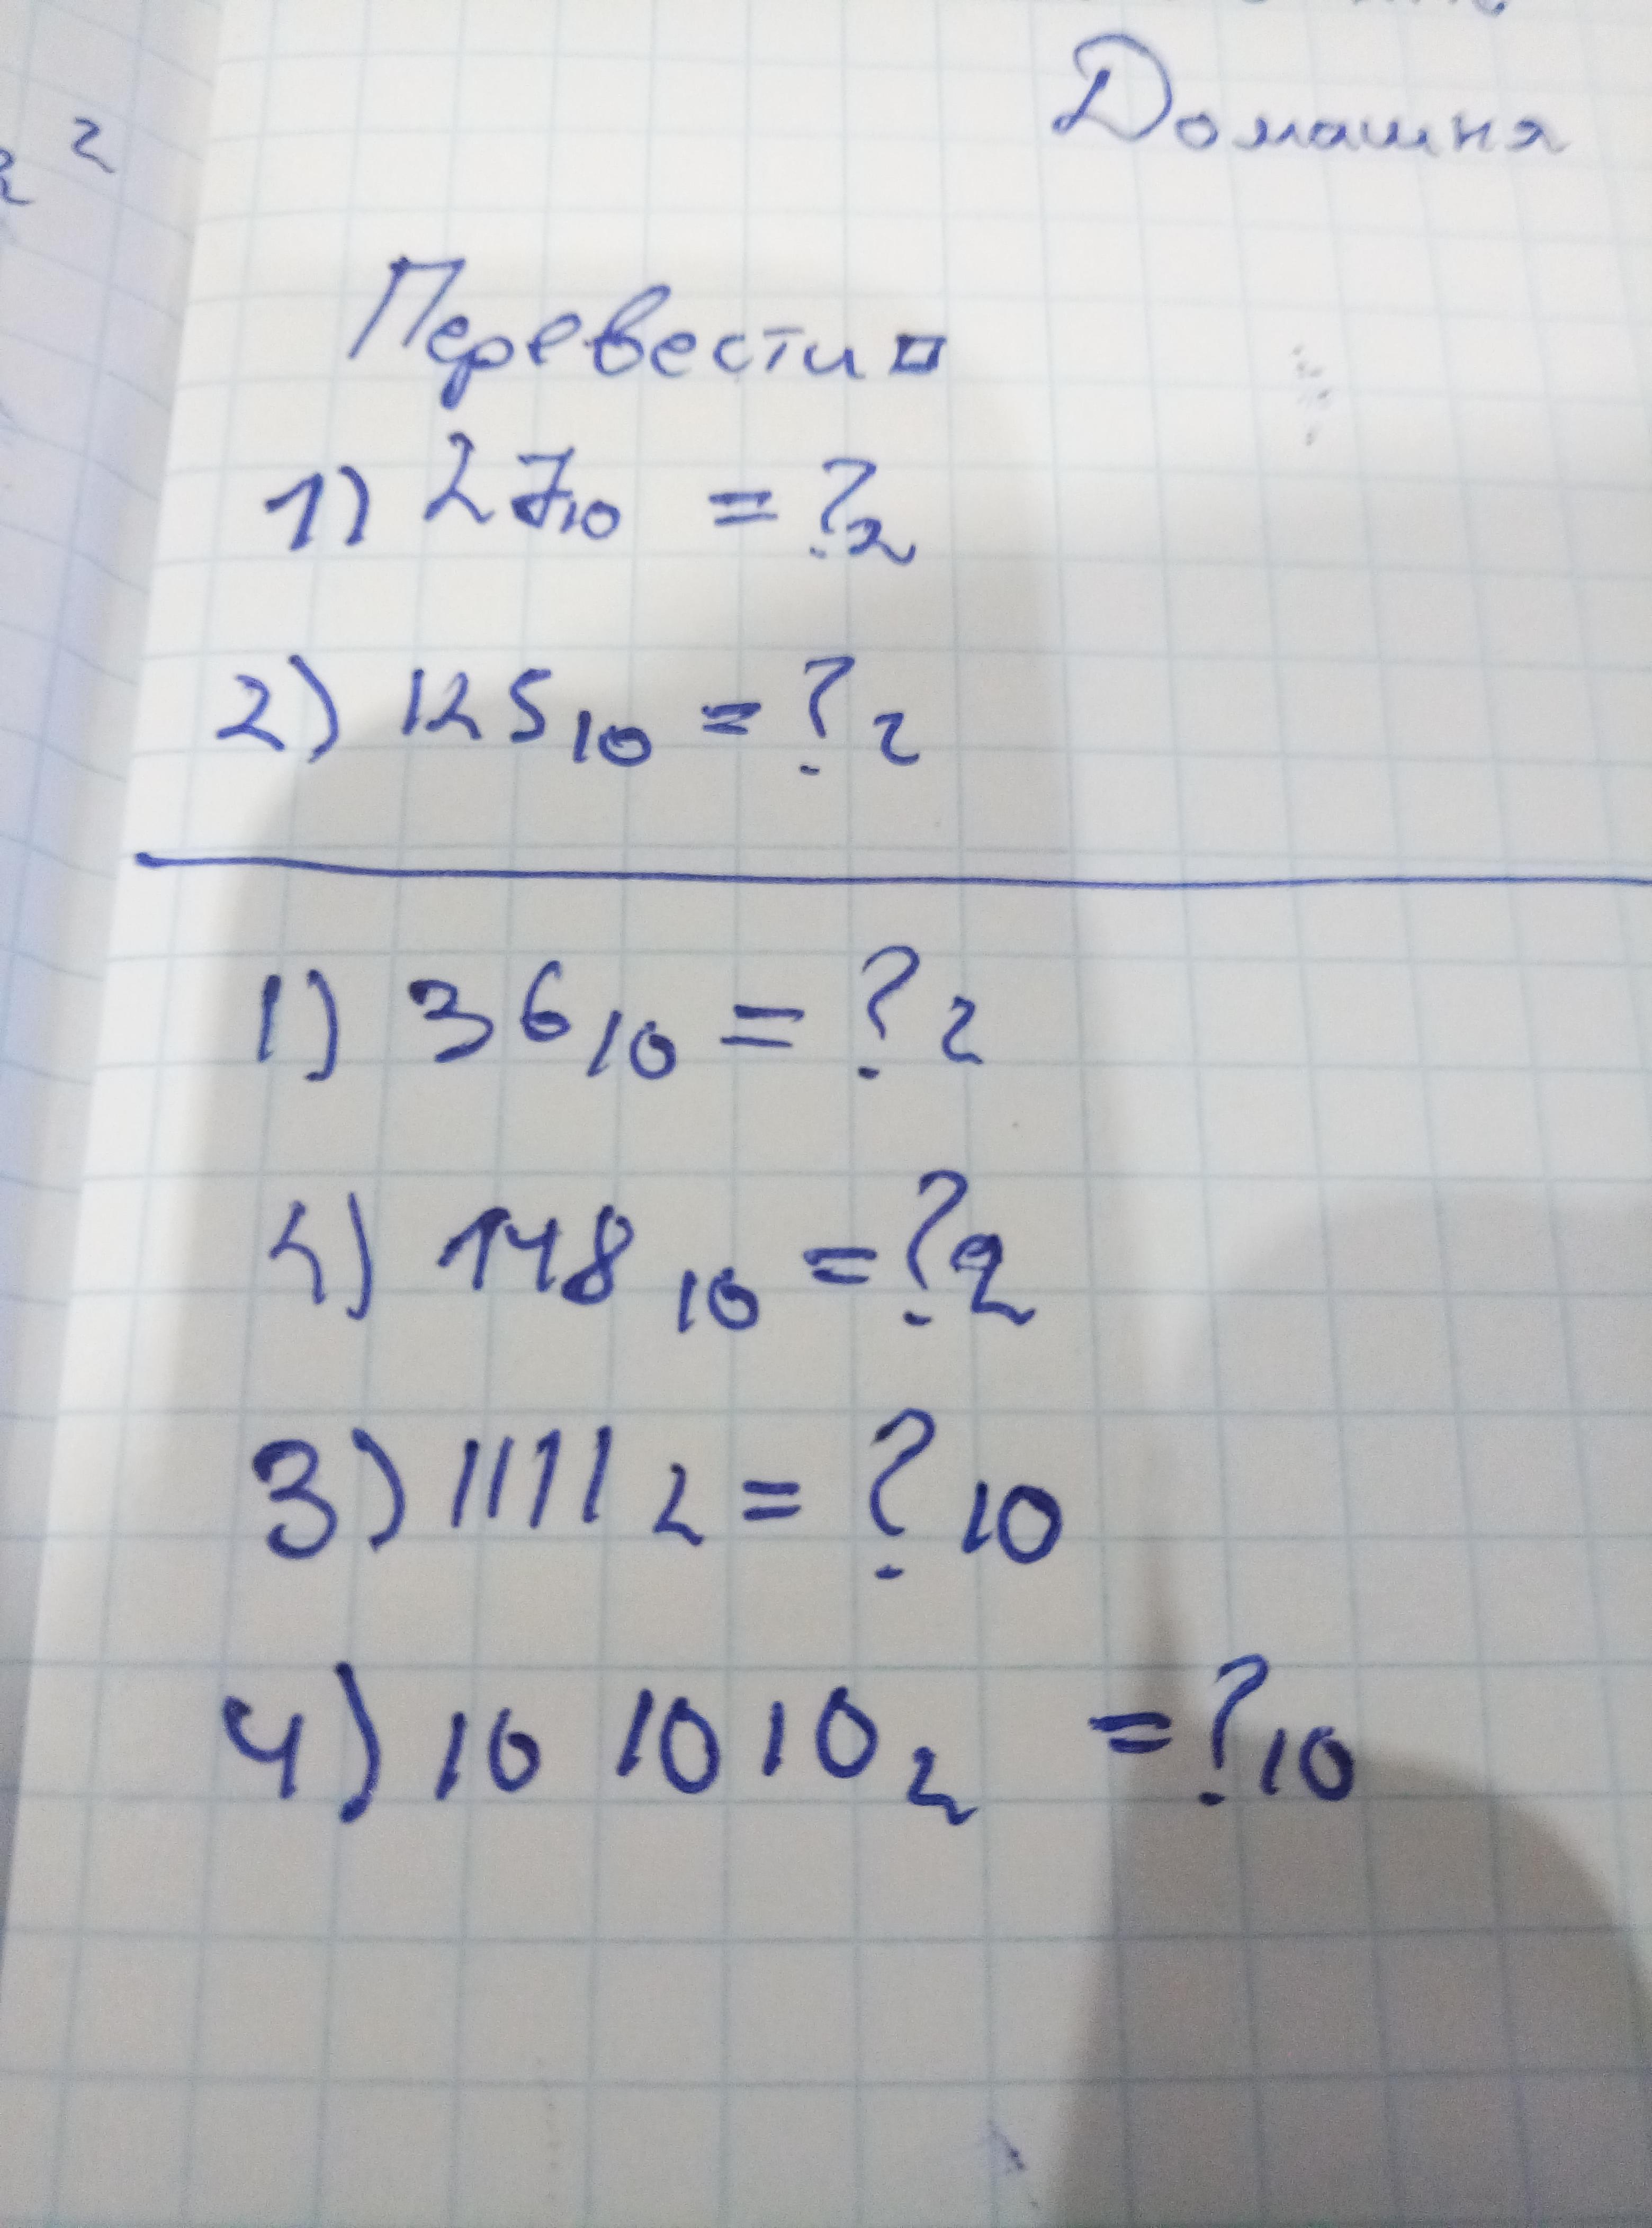 Домашня
2
Перевести
1) 27₁₀ = ?₂
2) 125₁₀ = ?₂
1) 36₁₀ = ?₂
2) 148₁₀ = ?₂
3) 1111₂ = ?₁₀
4) 10 10 10₂ = ?₁₀